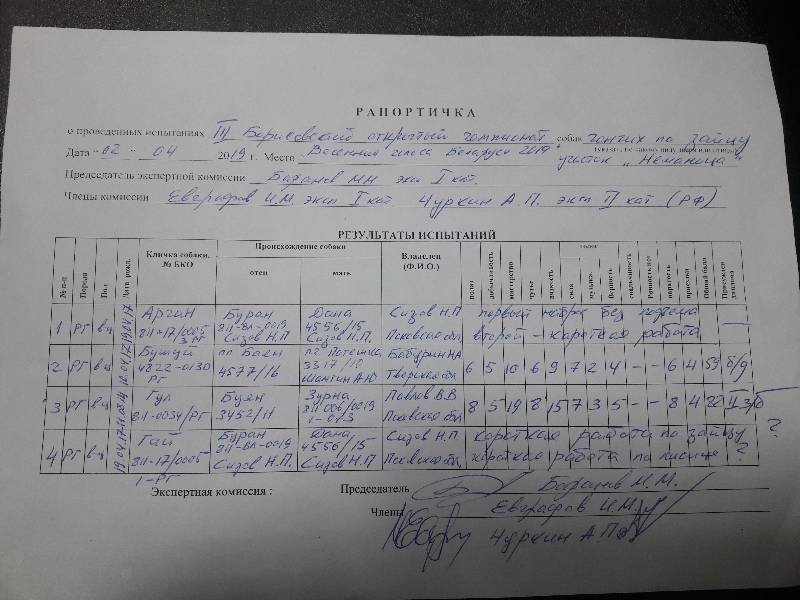 РАПОРТИЧКА
о проведенных испытаниях III Борисовский открытый чемпионат собак гончих по зайцу
Дата "02 - 04 2019 г. Место Весенние голоса Беларуси 2019" участок "Неманица"
Председатель экспертной комиссии М.М. эксп I кат.
Члены комиссии Евграфов И.М. эксп I кат. Чуркин А.П. эксп II кат (РФ)
РЕЗУЛЬТАТЫ ИСПЫТАНИЙ
№ п-п Порода Пол Дата рожд. Кличка собаки, № БКО Происхождение собаки отец мать Владелец (Ф.И.О.) полаз добычливость мастерство чутье вязкость голос сила музыка верность паратость приездка Общий балл Присужден диплома
1 РГ вц Буран Дана Сизов Н.П первый без подъема
811-17/0005 811-ВА-0019 4556/15 Псковская обл второй - короткая работа —
3 РГ Сизов Н.П Сизов Н.П.
2 РГ вц по Баен пг Потешка Бабурин НА 6 5 10 6 9 7 2 4 - - 6 4 59 б/д
4822-0130 4577/16 3317/10 Тверская обл
РГ Шантин А.Ю
3 РГ вц Гул Буян Зурна Павлов В.В 8 5 19 8 15 7 3 5 - - 8 4 82
811-0034/РГ 3452/11 811-006/0019 Псковская обл
4 РГ вц Гай Буран Дана Сизов Н.П короткая работа по зайцу ?
811-17/0005 811-ВА-0019 4556/15 Псковская обл короткая работа по лисице ?
1-РГ Сизов Н.П. Сизов Н.П
Экспертная комиссия : Председатель М.М.
Члены Евграфов И.М.
Чуркин А.П.